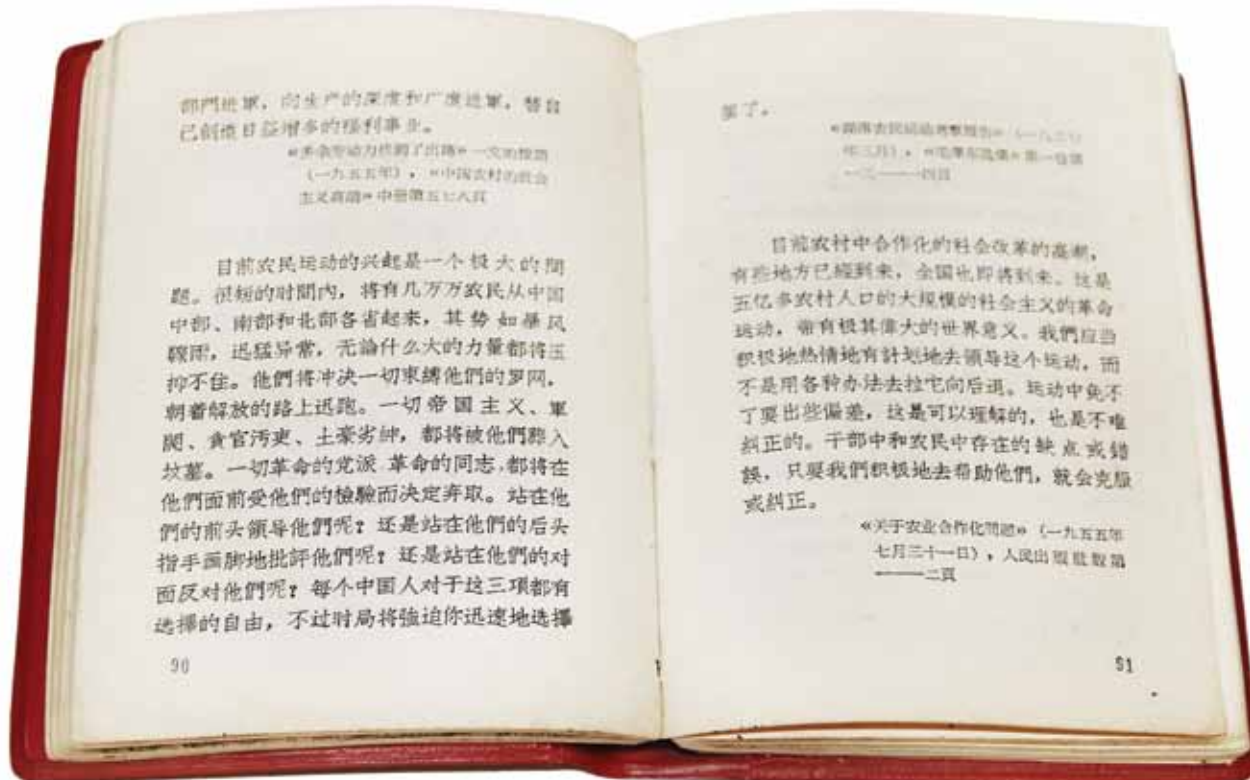 部門进軍，向生产的深度和广度进軍，替自
己創造日益增多的福利事业。
«多余劳动力找到了出路»一文的按語
（一九五五年），«中国农村的社会
主义高潮»中册第五七八頁
目前农民运动的兴起是一个极大的問
題。很短的时間內，将有几万万农民从中国
中部、南部和北部各省起来，其势如暴风
驟雨，迅猛异常，无論什么大的力量都将压
抑不住。他們将冲决一切束縛他們的罗网，
朝着解放的路上迅跑。一切帝国主义、軍
閥、貪官污吏、土豪劣紳，都将被他們葬入
坟墓。一切革命的党派、革命的同志，都将在
他們面前受他們的檢驗而决定弃取。站在他
們的前头領导他們呢？还是站在他們的后头
指手画脚地批評他們呢？还是站在他們的对
面反对他們呢？每个中国人对于这三項都有
选擇的自由，不过时局将强迫你迅速地选擇
90
罢了。
«湖南农民运动考察报告»（一九二七
年三月），«毛澤东选集»第一卷第
一三——一四頁
目前农村中合作化的社会改革的高潮，
有些地方已經到来，全国也即将到来。这是
五亿多农村人口的大規模的社会主义的革命
运动，带有极其偉大的世界意义。我們应当
积极地热情地有計划地去領导这个运动，而
不是用各种办法去拉它向后退。运动中免不
了要出些偏差，这是可以理解的，也是不难
糾正的。干部中和农民中存在的缺点或錯
誤，只要我們积极地去帮助他們，就会克服
或糾正。
«关于农业合作化問題»（一九五五年
七月三十一日），人民出版社版第
一——二頁
91